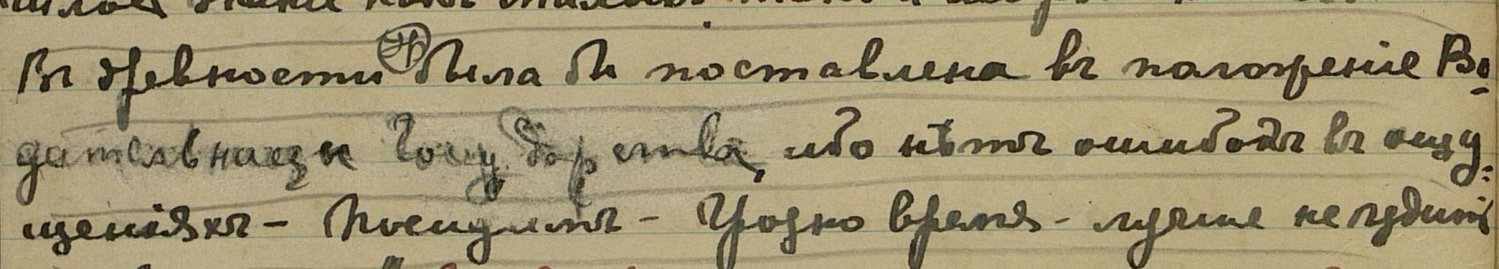 Въ древности была бы поставлена въ положеніе Во-
дительницы Государства, ибо нѣтъ ошибокъ въ ощу-
щеніяхъ – Посидимъ – Грозно время – лучше не чудить